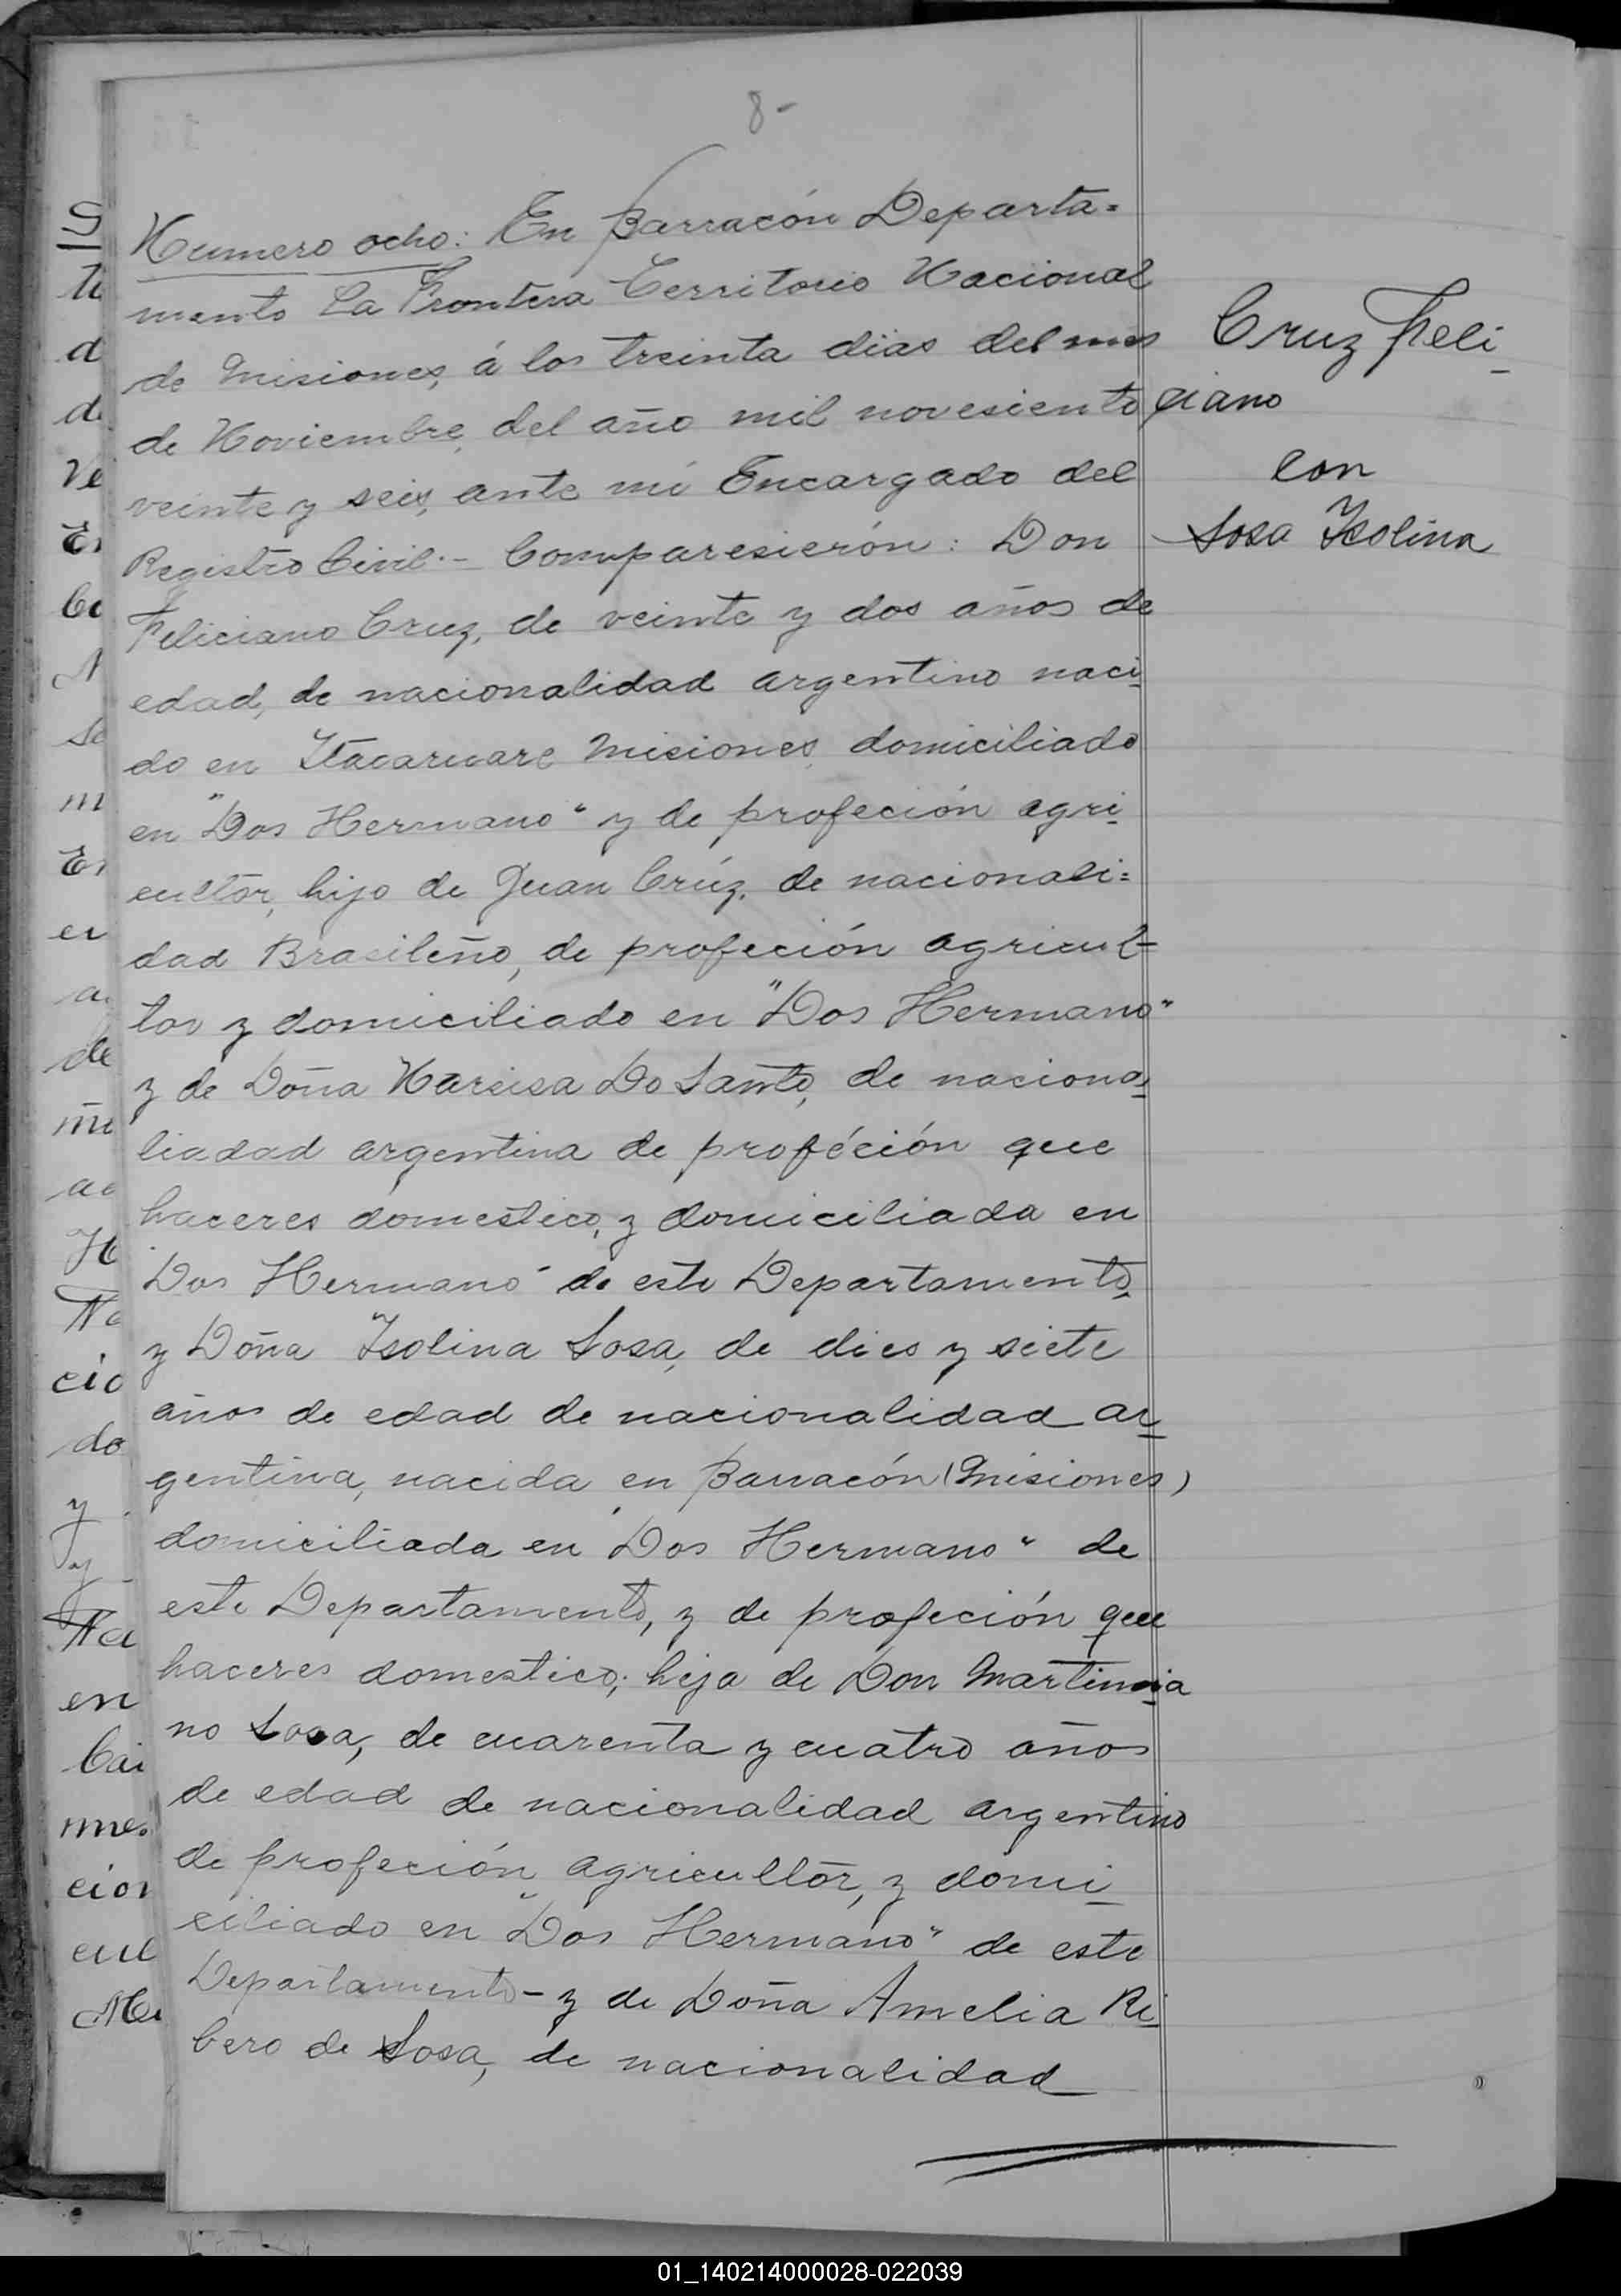 8-
Numero ocho: En Barracón Departa=
mento La Frontera Territorio Nacional
de Misiones, á los treinta dias del mes
de Noviembre, del año mil novesiento
veinte y seis, ante mi Encargado del
Registro Civil.- Comparesierón: Don
Feliciano Cruz, de veinte y dos años de
edad, de nacionalidad argentino naci-
do en Itacaruare Misiones, domiciliado
en "Dos Hermano" y de profeción agri-
cultor, hijo de Juan Crúz, de nacionali=
dad Brasileño, de profeción agricul-
tor y domiciliado en "Dos Hermano"
y de Doña Narsisa Do Santo, de naciona-
liadad argentina de profeción que
haceres domestico, y domiciliada en
"Dos Hermano" de este Departamento,
y Doña Isolina Sosa, de dies y siete
años de edad de nacionalidad ar-
gentina, nacida en Barracón (Misiones)
domiciliada en "Dos Hermano" de
este Departamento, y de profeción que
haceres domestico; hija de Don Martinia
no Sosa, de cuarenta y cuatro años
de edad de nacionalidad argentino
de profeción agricultor, y domi-
ciliado en "Dos Hermano" de este
Departamento - y de Doña Amelia Ri-
bero de Sosa, de nacionalidad
Cruz Feli-
ciano
con
Sosa Isolina
01_140214000028-022039